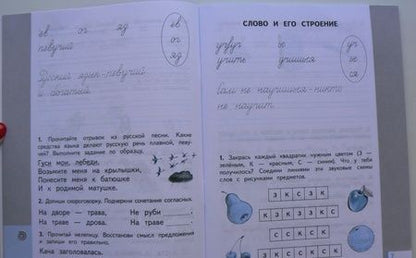 ев ог яд ев
певучий ог
яд
Русский язык - певучий
и богатый.
1. Прочитайте отрывок из русской песни. Какие
средства языка делают русскую речь плавной, певу-
чей? Выполните задание по образцу.
Гуси мои, лебеди,
Возьмите меня на крылышки,
Понесите меня к батюшке
И к родимой матушке.
2. Допиши скороговорку. Подчеркни сочетания согласных.
На дворе — трава, Не руби
На траве — дрова. На траве
3. Прочитай нелепицу. Восстанови смысл предложения
и запиши его правильно.
Каша заголовалась.
СЛОВО И ЕГО СТРОЕНИЕ
ье
учить учишься ье
ся
Сам не научишься - никто
не научит.
1. Закрась каждый квадратик нужным цветом (З —
зелёным, К — красным, С — синим). Что у тебя
получилось? Соедини линиями эти звуковые схемы
слов с рисунками предметов.
З К С З К
К З К З З К С
С С К С К